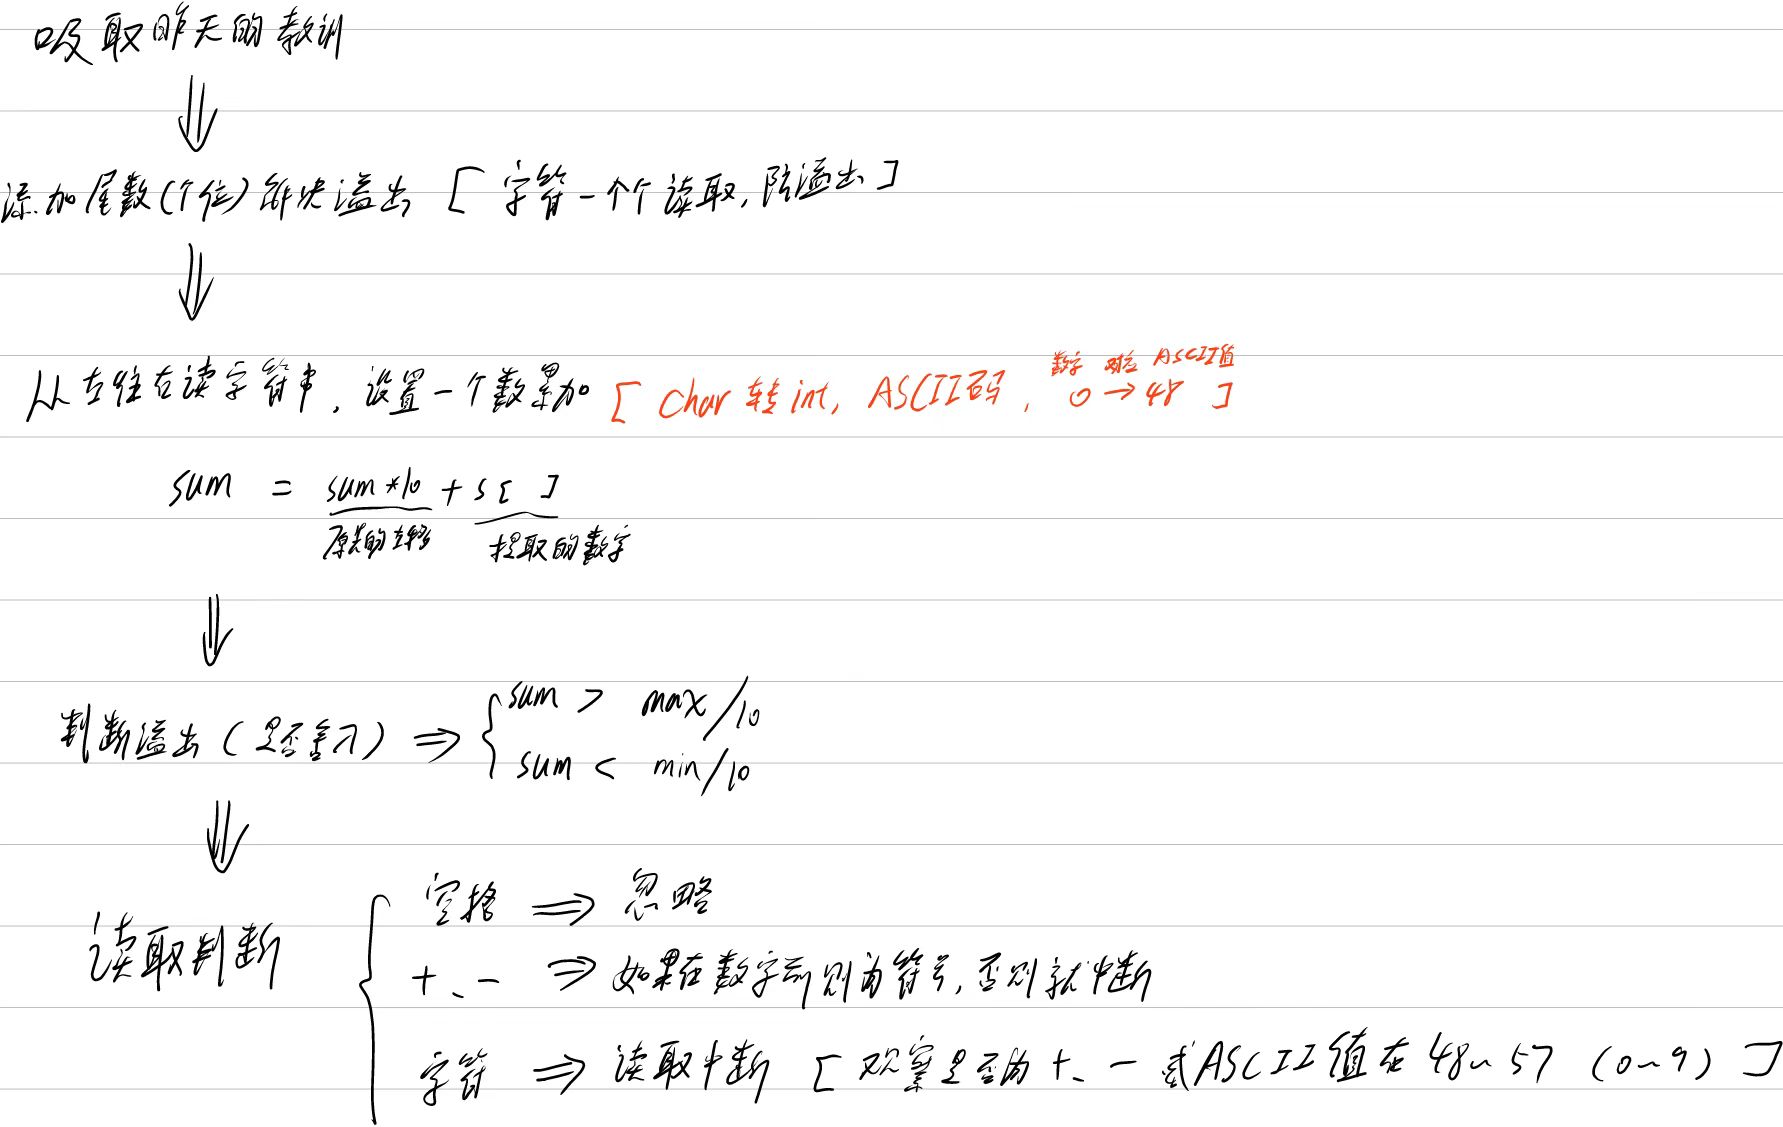 吸取昨天的教训
添加尾数(个位)解决溢出 [ 字符一个个读取,防溢出 ]
数字 对应 ASCII值
从左往右读字符串,设置一个数累加 [ char 转 int, ASCII码, 0 → 48 ]
sum = sum*10 + s[ ]
原来的左移 提取的数字
判断溢出 (是否舍入) ⇒ { sum > max/10
sum < min/10
空格 ⇒ 忽略
读取判断 { +、- ⇒ 如果在数字前则为符号,否则就中断
字符 ⇒ 读取中断 [ 观察是否为 +、- 或 ASCII 值在 48~57 (0~9) ]